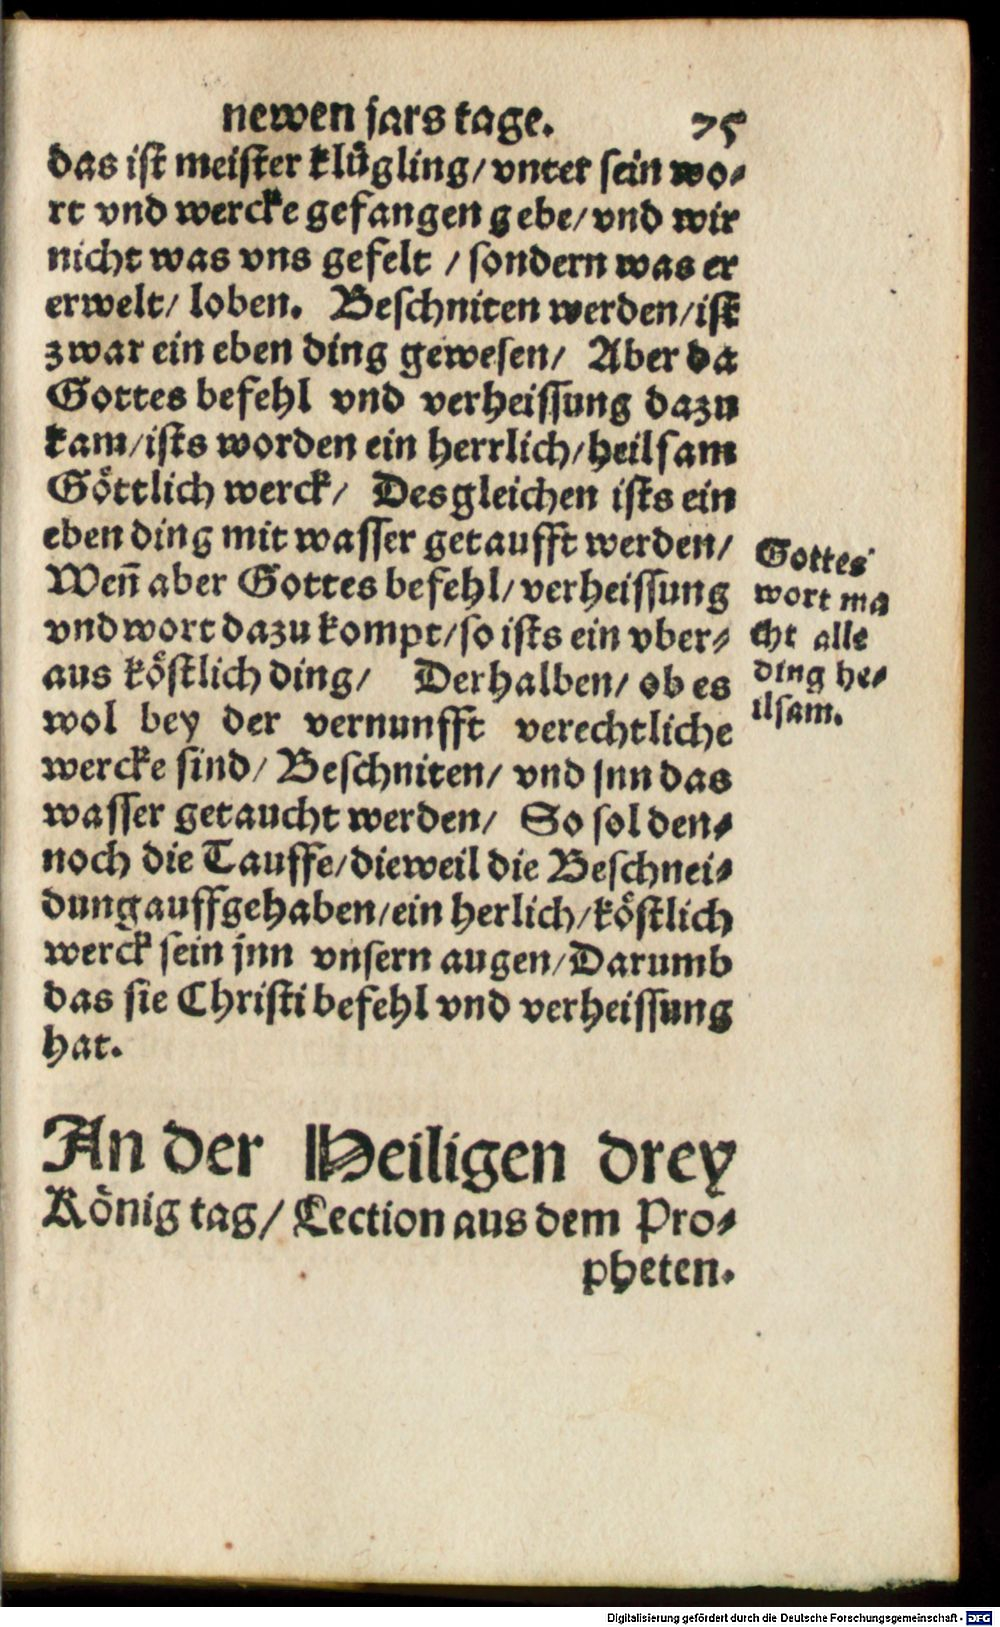 newen jars tage. 75
das ist meister klůgling/ vnter sein wo-
rt vnd wercke gefangen gebe/ vnd wir
nicht was vns gefelt / sondern was er
erwelt/ loben. Beschniten werden/ ist
zwar ein eben ding gewesen/ Aber da
Gottes befehl vnd verheissung dazu
kam/ ists worden ein herrlich/ heilsam
Göttlich werck/ Desgleichen ists ein
eben ding mit wasser getaufft werden/
Weñ aber Gottes befehl/ verheissung
vnd wort dazu kompt/ so ists ein vber-
aus köstlich ding/ Derhalben/ ob es
wol bey der vernunfft verechtliche
wercke sind/ Beschniten/ vnd jnn das
wasser getaucht werden/ So sol den-
noch die Tauffe/ dieweil die Beschnei-
dung auffgehaben/ ein herlich/ köstlich
werck sein jnn vnsern augen/ Darumb
das sie Christi befehl vnd verheissung
hat.
Gottes
wort ma
cht alle
ding he-
ilsam.
An der Heiligen drey
König tag/ Lection aus dem Pro-
pheten.
Digitalisierung gefördert durch die Deutsche Forschungsgemeinschaft - DFG